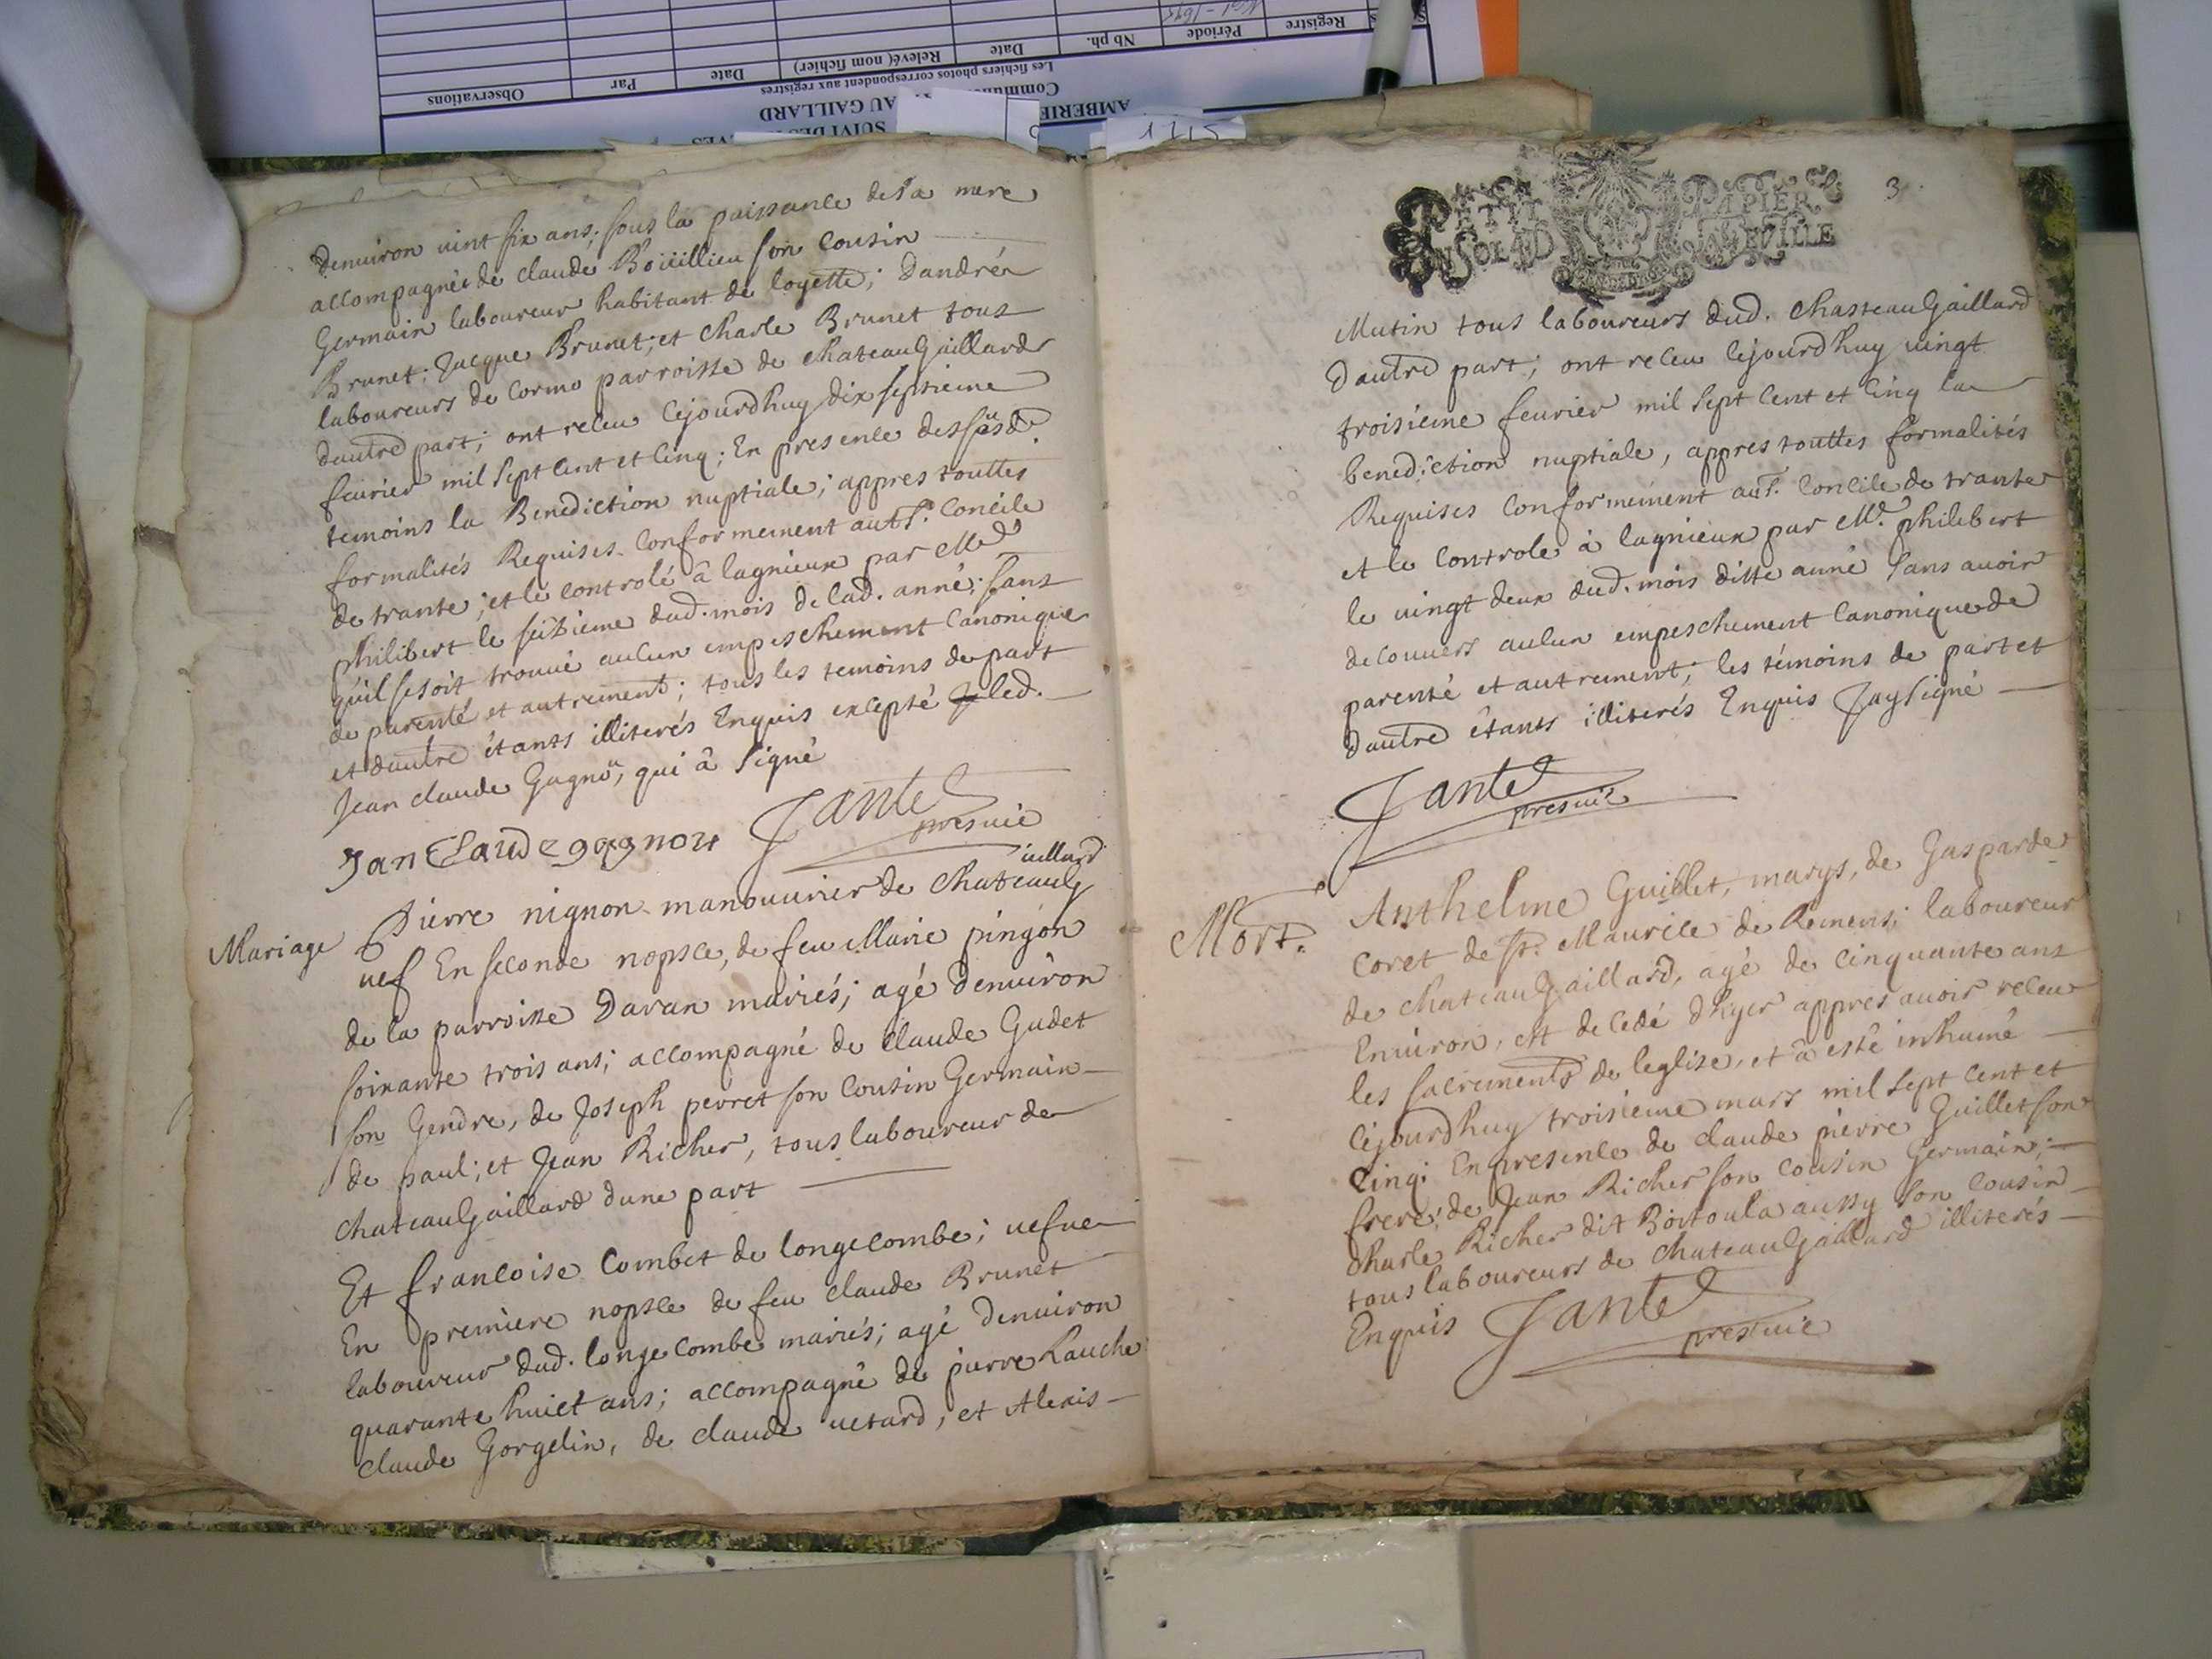 Observations
Par
Date
Relevé( nom fichier)
Date
Nb ph.
Période
Registre
Les fichiers photos correspondent aux registres
AU GAILLARD
AMBERIE
1715
denuiron uint six ans; sous la puissance de sa mere
accompagnée de claude Boüillieu son cousin
Germain laboureur habitant de loyette; Dandréa
Brunet; Jacque Brunet; et charle Brunet tous
laboureurs de Cormo parroisse de chateauGaillard
dautre part; ont receu cejourdhuy dix septieme
feurier mil sept cent et cinq; En presence desssusd.
temoins la Benediction nuptiale; appres touttes
formalités Requises conformement au St. Concile
de trante; et le controlé â lagnieux par Me
philibert le seizieme dud. mois de lad. anné; sans
quil se soit trouué aucun empeschement Canonique
de parenté et autrement; tous les temoins de part
et dautre étants illiterés Enquis excepté led.
Jean claude Gagnō, qui â signé
Jan Claude gagnon
Jantet
pres uic
Mariage
Pierre nignon manouurier de chateauG
aillard
uef En seconde nopsce, de feu Marie pingon
de la parroisse Daran mariés; agé denuiron
soixante trois ans; accompagné de claude Gudet
son Gendre, de Joseph perret son cousin Germain
de paul; et Jean Richer, tous laboureur de
chateauGaillard dune part
Et francoise Combet de longecombe; uefue
En premiere nopsce de feu claude Brunet
laboureur dud. longecombe mariés; agé denuiron
quarante huict ans; accompagné de pierre Lauche
claude Gorgelin, de claude uetard, et Alexis
3.
PETIT PAPIER
UN SOL 4 D LA FEVILLE
Mutin tous laboureurs dud. chasteauGaillard
dautre part; ont receu cejourdhuy uingt
troisieme feurier mil sept cent et cinq la
benediction nuptiale, appres touttes formalités
Requises conformement au St. Concile de trante
et le controle â lagnieux par Me. philibert
le uingt deux dud. mois ditte anné sans auoir
decouuers aucun empeschement Canonique de
parenté et autrement; les témoins de part et
dautre étants illiterés Enquis Jay signé
Jantet
pres uic
Mort.
Anthelme Guillet, marys, de Gasparde
Coret de St. Maurice de Remens; laboureur
de chateauGaillard, agé de cinquante ans
Enuiron, est decedé dhyer appres auoir receu
les sacrements de leglise, et â esté inhumé
cejourdhuy troisieme mars mil sept cent et
cinq; En presence de claude pierre Guillet son
frere; de Jean Richer son cousin Germain;
charle Richer dit Boitoula aussy son cousin
tous laboureurs de chateauGaillard illiterés
Enquis
Jantet
pres uic